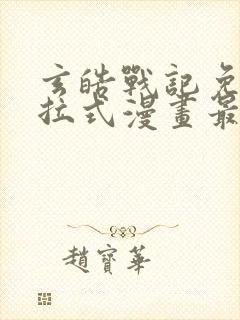 玄皓戰記免
拉式漫畫最
趙寶華